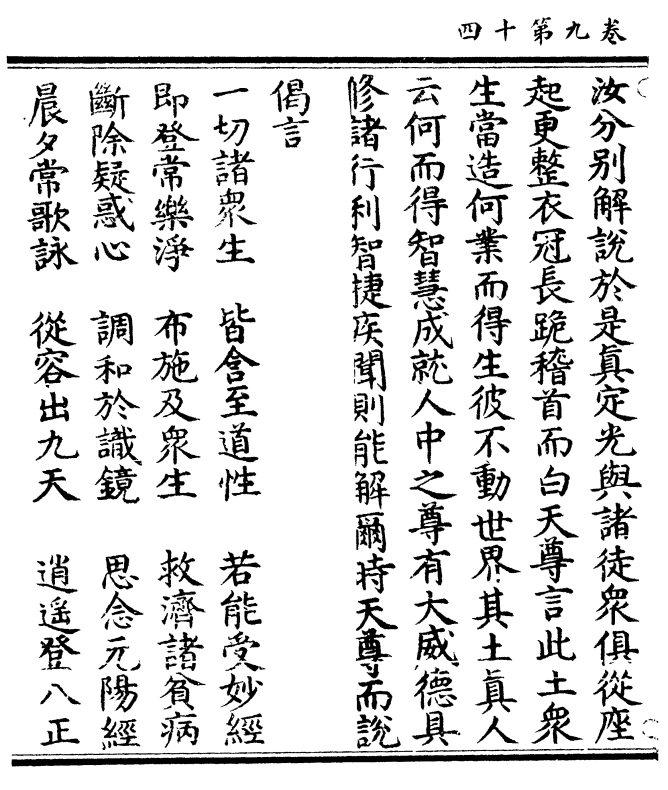 卷九第十四
汝分別解說於是眞定光與諸徒衆俱從座
起更整衣冠長跪稽首而白天尊言此土衆
生當造何業而得生彼不動世界其土眞人
云何而得智慧成就人中之尊有大威德具
修諸行利智捷疾聞則能解爾時天尊而說
偈言
一切諸衆生 皆含至道性 若能受妙經
即登常樂淨 布施及衆生 救濟諸貧病
斷除疑惑心 調和於識鏡 思念元陽經
晨夕常歌詠 從容出九天 逍遥登八正